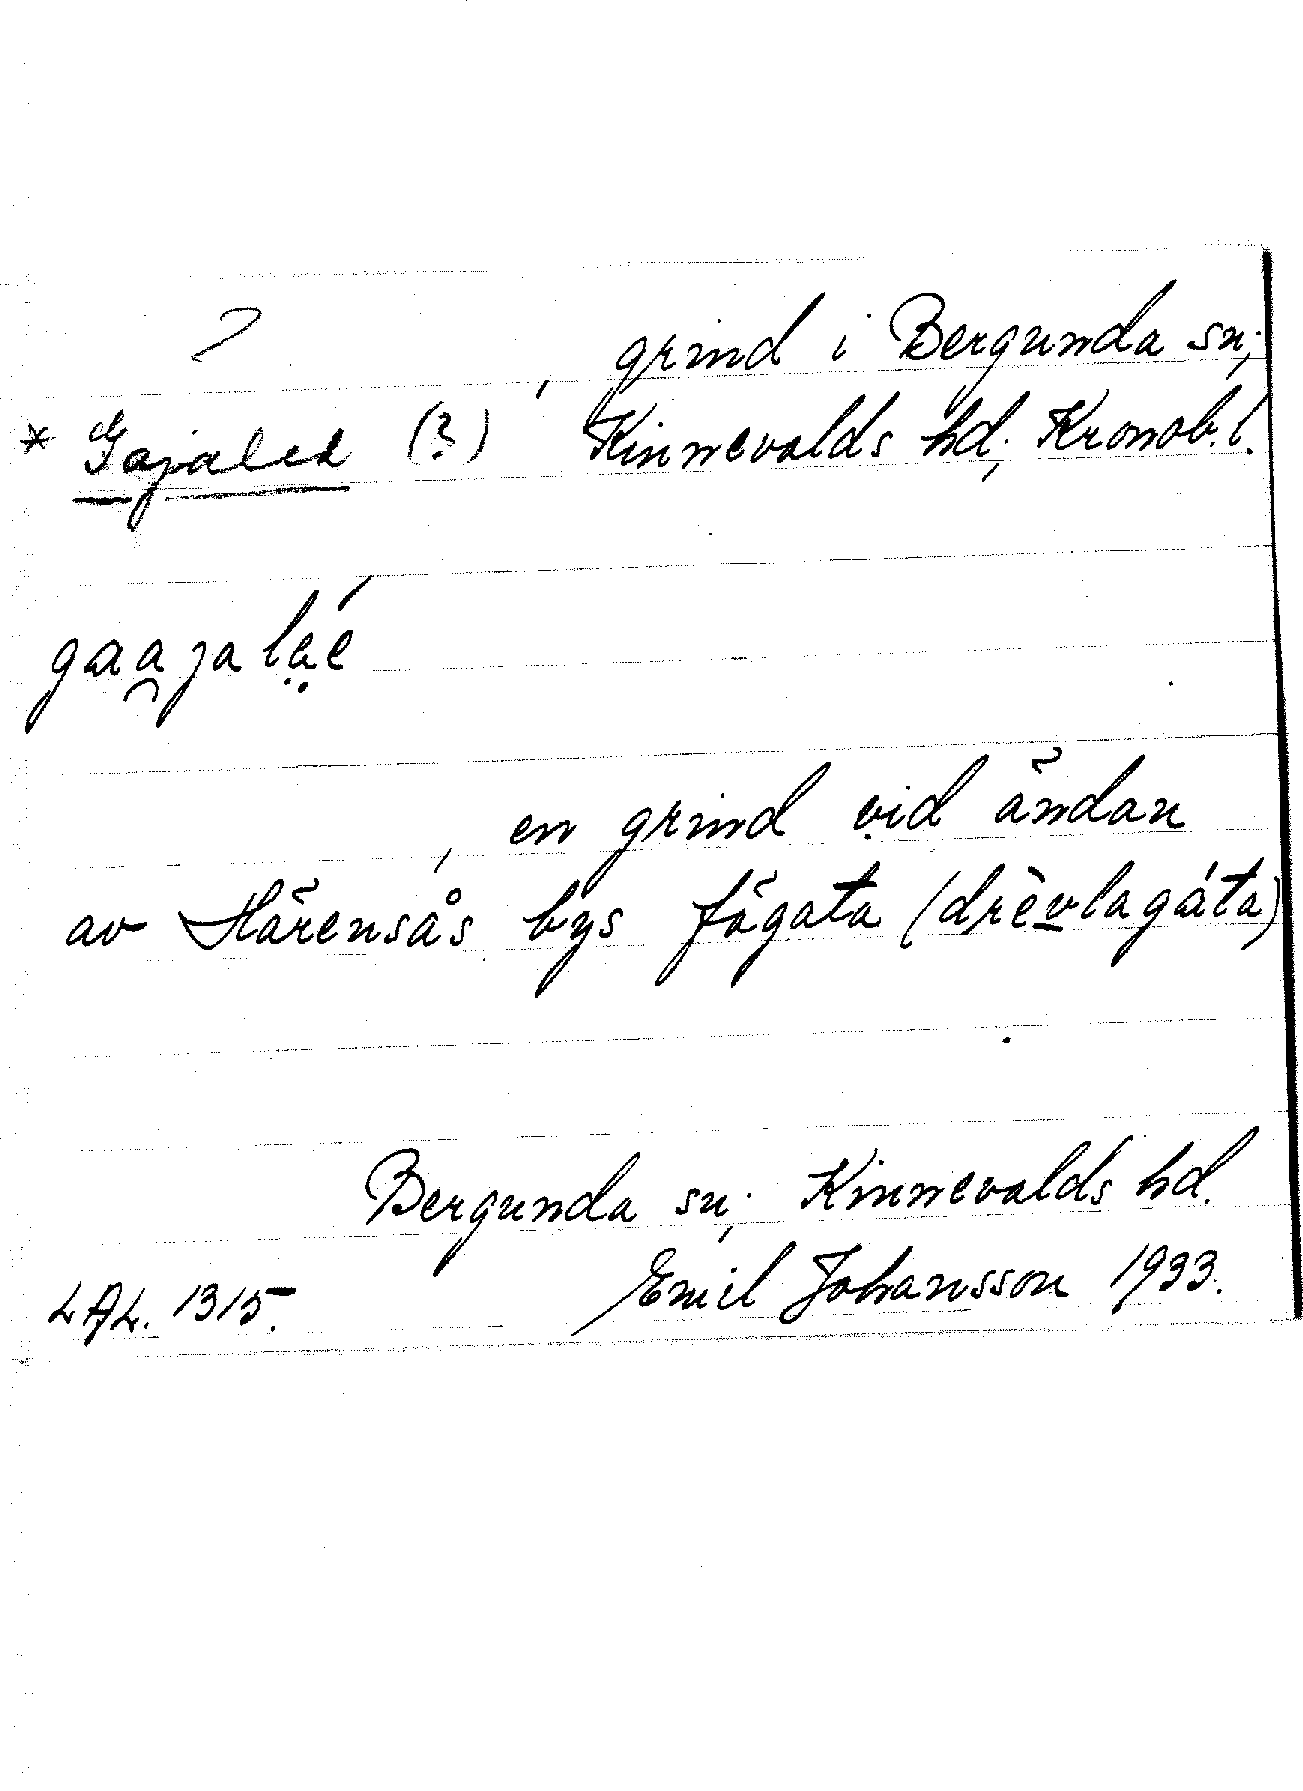 ?
, grind i Bergunda sn;
* Gajaled (?) Kinnevalds hd; Kronob. l.
gaajalé
, en grind vid ändan
av Härensås bys fägata (drèvlagáta)
Bergunda sn; Kinnevalds hd.
LAL. 1315. Emil Johansson 1933.